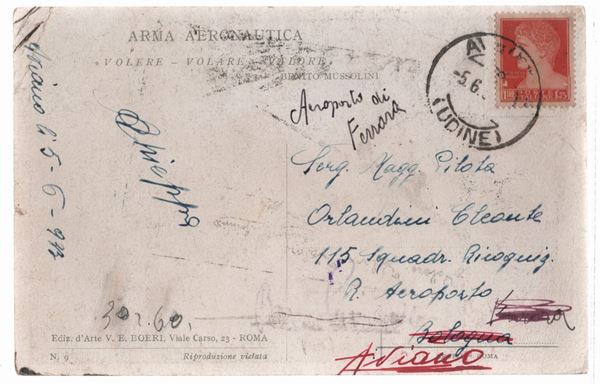 ARMA AERONAUTICA
VOLERE - VOLARE - VALORE
BENITO MUSSOLINI
Aeroporto di
Ferrara
(UDINE)
Giuseppe
Aviano li 5-6-942
Serg. Magg. Pilota
Orlandini Cleonte
115 Squadr. Ricognig.
R. Aeroporto
Bologna
Aviano
302.60.
Ediz. d'Arte V. E. BOERI, Viale Carso, 23 - ROMA
N. 9
Riproduzione vietata
ROMA